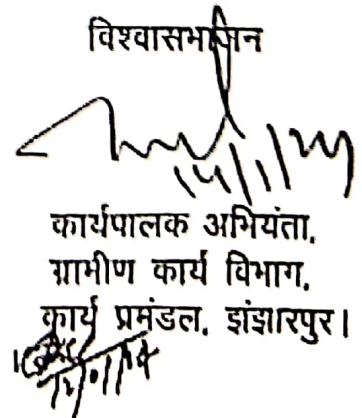 विश्वासभाजन
कार्यपालक अभियंता,
ग्रामीण कार्य विभाग,
कार्य प्रमंडल, झंझारपुर।